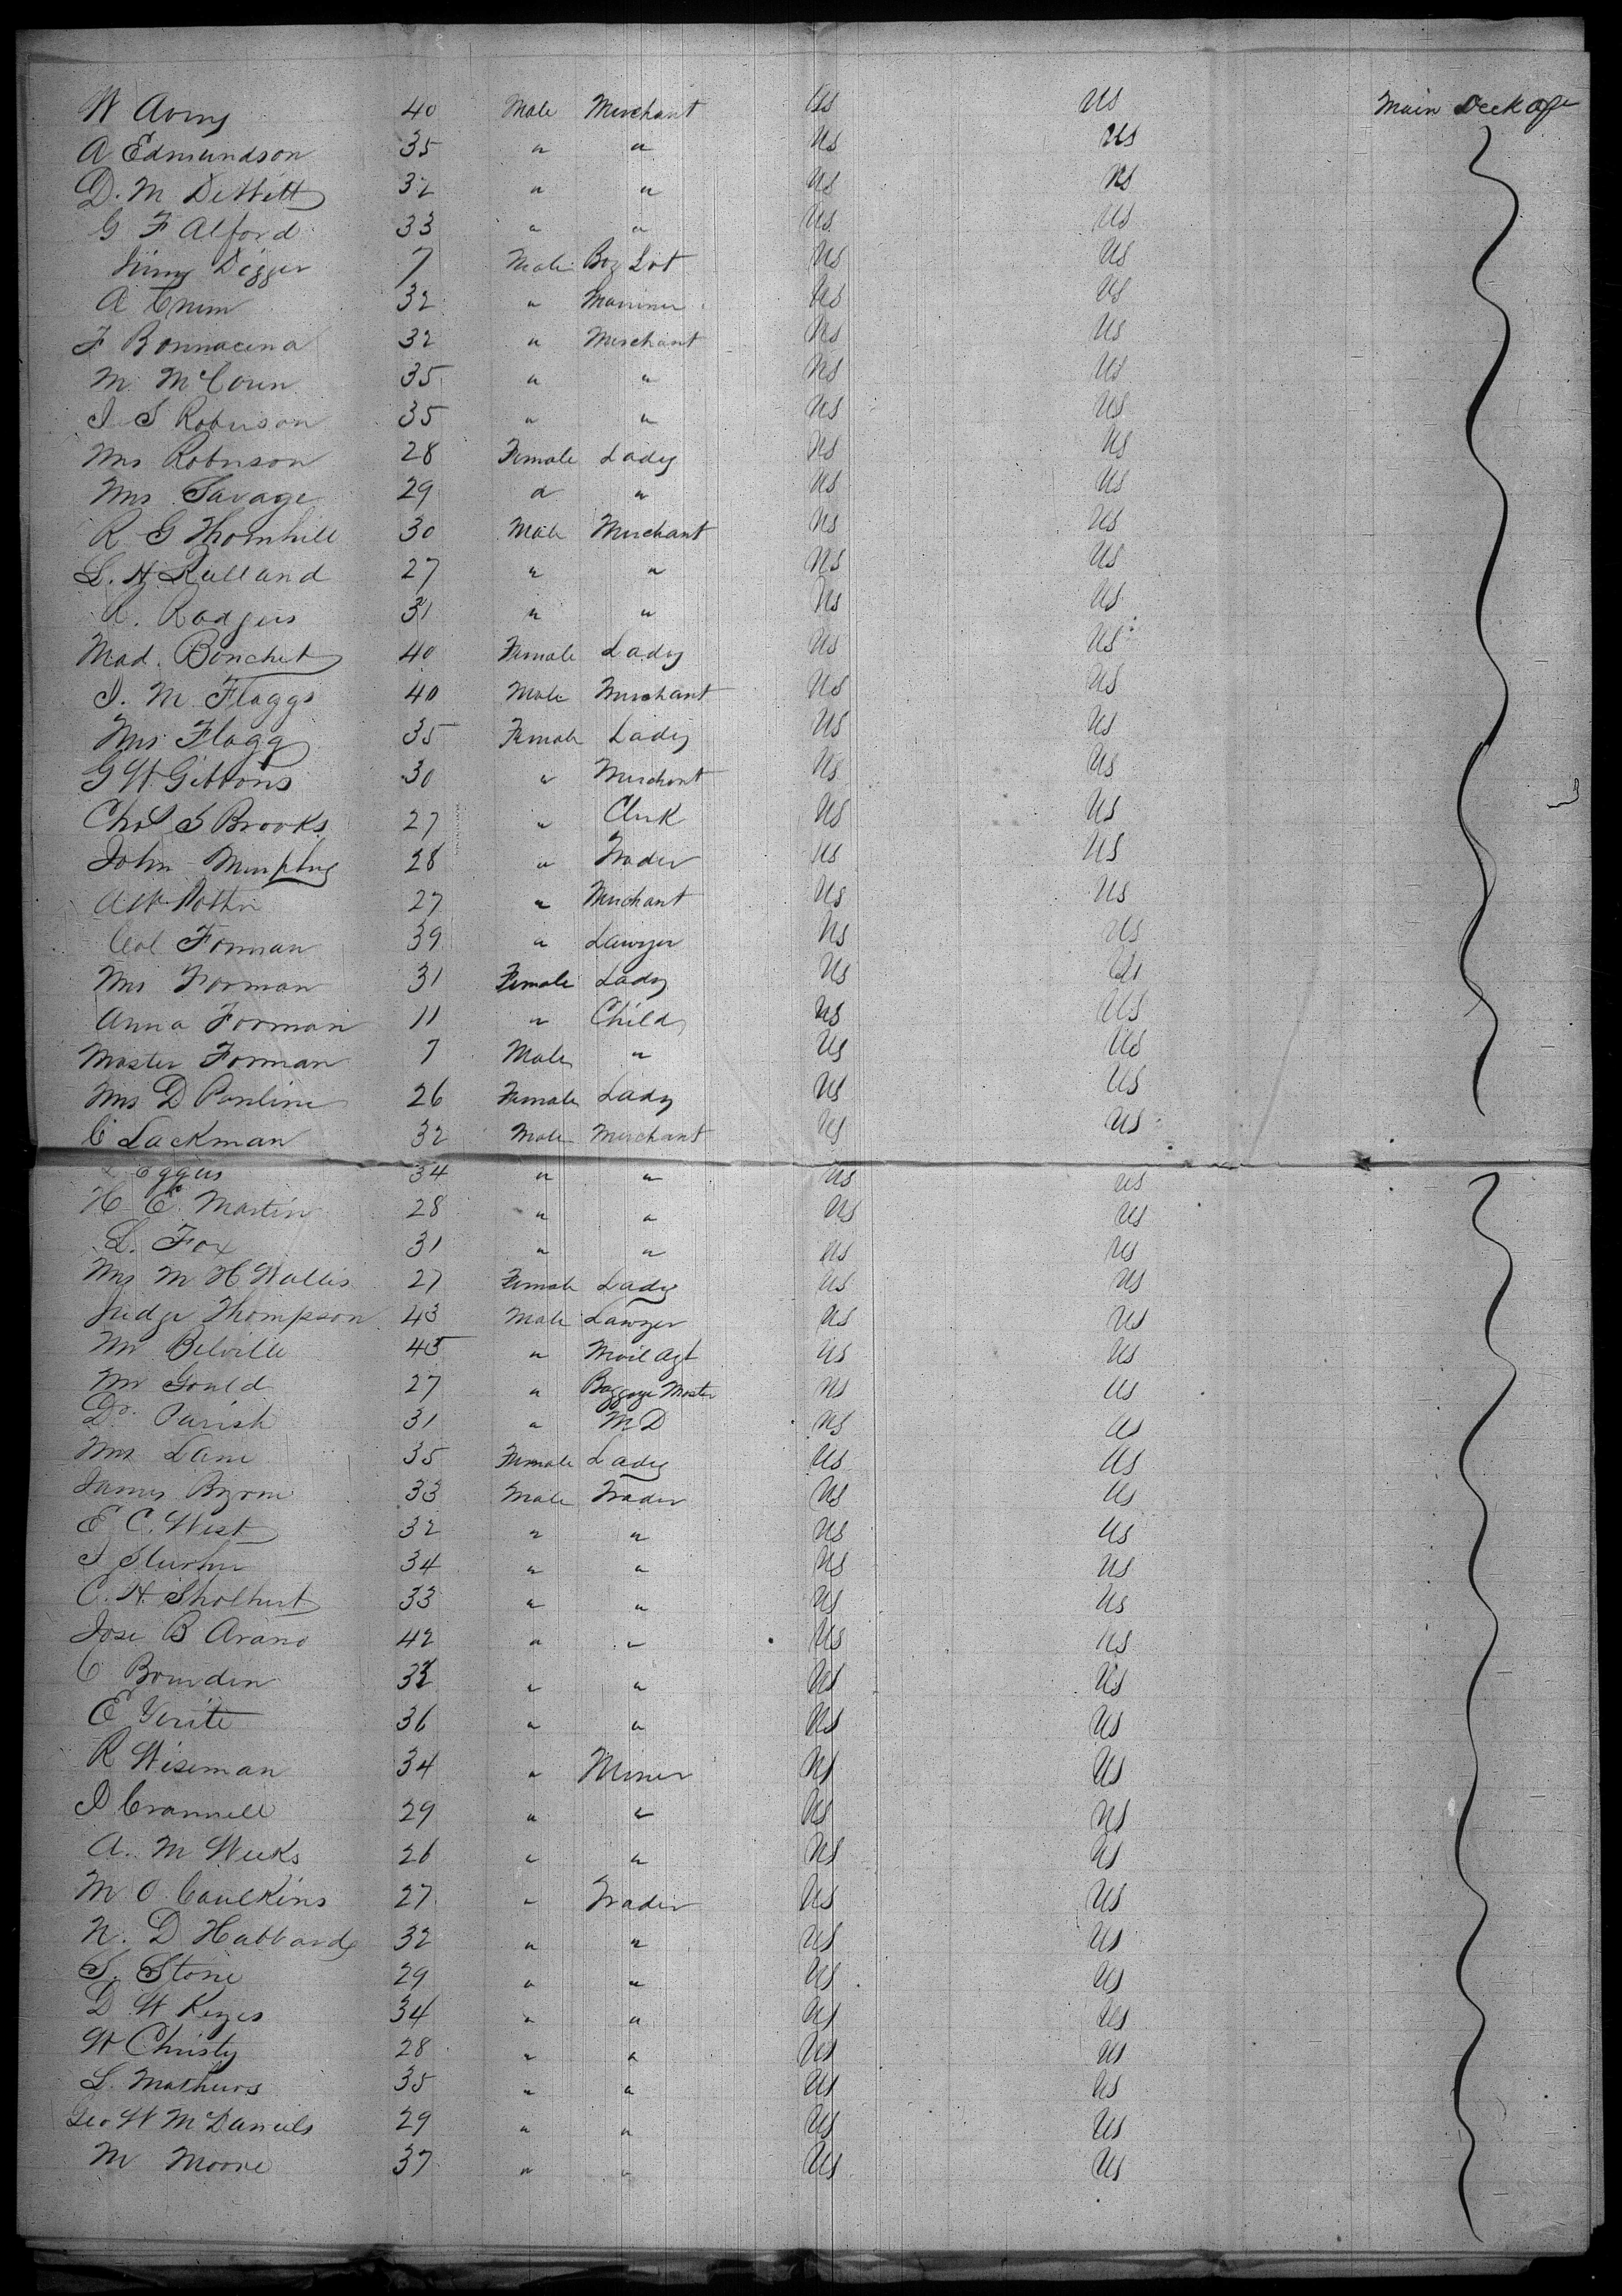 W Avery 40 Male Merchant US US Main Deck aft
A Edmundson 35 " " US US
D. M DeWitt 32 " " US US
G F Alford 33 " " US US
Jimy Digger 7 Male Boy US US
A 32 " Marriner US US
F Bonnacina 32 " Merchant US US
M McCoun 35 " " US US
J. S Robinson 35 " " US US
Mrs Robinson 28 Female Lady US US
Mrs Savage 29 " " US US
R G Thornhill 30 Male Merchant US US
L. H Rulland 27 " " US US
R. Rodgers 31 " " US US
Mad. Bonchet 40 Female Lady US US
J. M Flaggs 40 Male Merchant US US
Mrs Flagg 35 Female Lady US US
G W Gibbons 30 " Merchant US US
Chas S Brooks 27 " Clerk US US
John Murphy 28 " Trader US US
A W 27 " Merchant US US
Col Forman 39 " Lawyer US US
Mrs Forman 31 Female Lady US US
Anna Forman 11 " Child US US
Master Forman 7 Male " US US
Mrs D Ponline 26 Female Lady US US
C Lackman 32 Male Merchant US US
Eggers 34 " " US US
H E. Martin 28 " " US US
L. Fox 31 " " US US
Mrs M H Wallis 27 Female Lady US US
Judge Thompson 43 Male Lawyer US US
Mr Belville 45 " Mail Agt US US
Mr Gould 27 " Baggage Master US US
Dr. Parish 31 " M D US US
Mrs Lane 35 Female Lady US US
James Byrne 33 Male Trader US US
E C. West 32 " " US US
34 " " US US
C. H. Sholhurt 33 " " US US
Jose B Arano 42 " " US US
C Bourdin " " US US
E Verite 36 " " US US
R Wiseman 34 " Miner US US
J Crannell 29 " " US US
A. M Weeks 26 " " US US
M O Caulkins 27 " Trader US US
N. D Hubbard 32 " " US US
S. Stone 29 " " US US
D. W Keyes 34 " " US US
W Christy 28 " " US US
L. Mathews 35 " " US US
Geo W McDaniels 29 " " US US
M Moore 37 " " US US